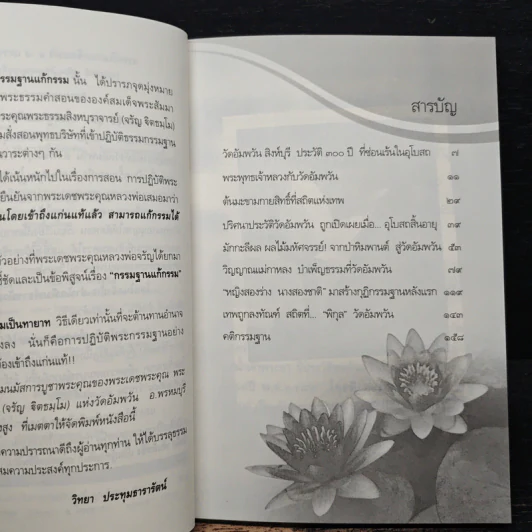 รรมฐานแก้กรรม นั้น ได้ปรารภจุดมุ่งหมาย
พระธรรมคำสอนขององค์สมเด็จพระสัมมา
ระคุณพระธรรมสิงหบุราจารย์ (จรัญ ฐิตธมฺโม)
มสั่งสอนพุทธบริษัทที่เข้าปฏิบัติธรรมกรรมฐาน
วาระต่างๆ กัน
ได้เน้นหนักไปในเรื่องการสอน การปฏิบัติพระ
ยืนยันจากพระเดชพระคุณหลวงพ่อเสมอมาว่า
นโดยเข้าถึงแก่นแท้แล้ว สามารถแก้กรรมได้
ตัวอย่างที่พระเดชพระคุณหลวงพ่อจรัญได้ยกมา
ชี้ชัดและเป็นข้อพิสูจน์เรื่อง "กรรมฐานแก้กรรม"
มเป็นทายาท วิธีเดียวเท่านั้นที่จะต้านทานอำนาจ
งลง นั่นก็คือการปฏิบัติพระกรรมฐานอย่าง
องเข้าถึงแก่นแท้!!
มนมัสการบูชาพระคุณของพระเดชพระคุณ พระ
(จรัญ ฐิตธมฺโม) แห่งวัดอัมพวัน อ.พรหมบุรี
งสูง ที่เมตตาให้จัดพิมพ์หนังสือนี้
ความปรารถนาดีถึงผู้อ่านทุกท่าน ให้ได้บรรลุธรรม
สมความประสงค์ทุกประการ.
วิทยา ประทุมธารารัตน์
สารบัญ
วัดอัมพวัน สิงห์บุรี ประวัติ ๓๐๐ ปี ที่ซ่อนเร้นในอุโบสถ ๗
พระพุทธเจ้าหลวงกับวัดอัมพวัน ๑๑
ต้นมะขามกายสิทธิ์ที่สถิตแห่งเทพ ๒๙
ปริศนาประวัติวัดอัมพวัน ถูกเปิดเผยเมื่อ... อุโบสถสิ้นอายุ ๓๙
มักกะลีผล ผลไม้มหัศจรรย์! จากป่าหิมพานต์ สู่วัดอัมพวัน ๕๓
วิญญาณแม่กาหลง บำเพ็ญธรรมที่วัดอัมพวัน ๗๙
"หญิงสองร่าง นางสองชาติ" มาสร้างกุฏิกรรมฐานหลังแรก ๑๑๙
เทพถูกลงทัณฑ์ สถิตที่... "พิกุล" วัดอัมพวัน ๑๔๓
คติกรรมฐาน ๑๕๘